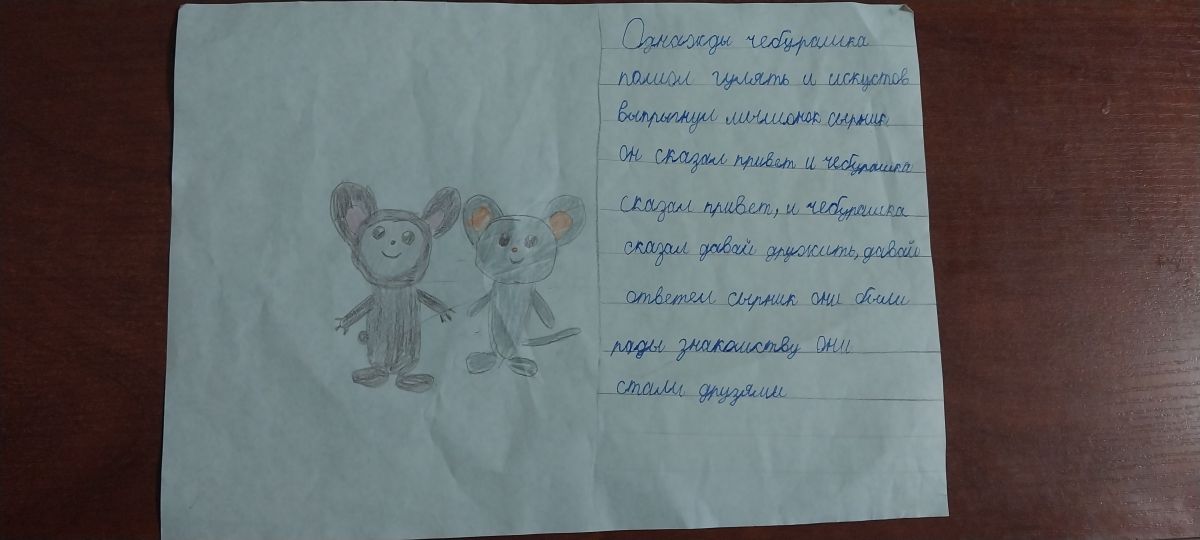 Однажды чебурашка
пошол гулять и искустов
выпрыгнул мышонок сырник
он сказал привет и чебурашка
сказал привет, и чебурашка
сказал давай дружить, давай
ответел сырник они были
рады знакомству они
стали друзями